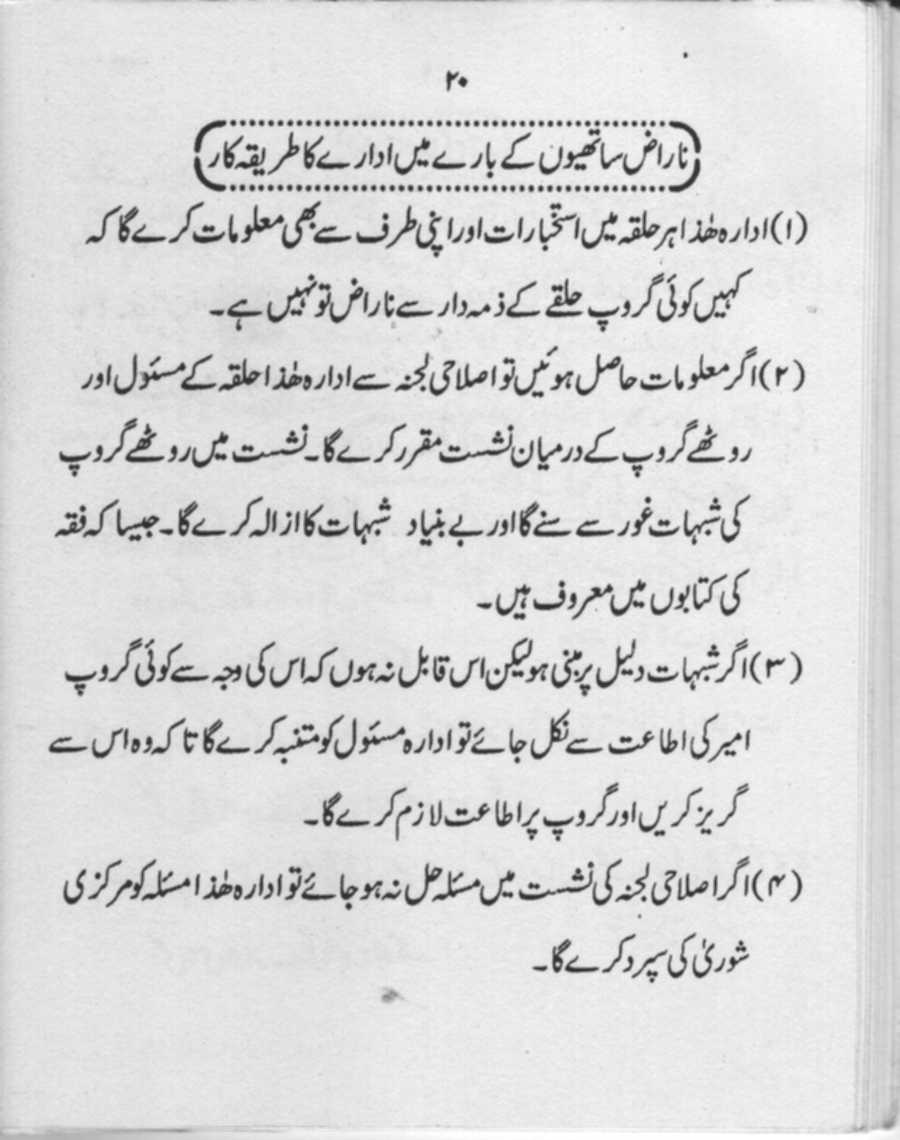 ۲۰
ناراض ساتھیوں کے بارے میں ادارے کا طریقہ کار
(۱) ادارہ ھٰذا ہر حلقہ میں استخبارات اور اپنی طرف سے بھی معلومات کرے گا کہ
کہیں کوئی گروپ حلقے کے ذمہ دار سے ناراض تو نہیں ہے۔
(۲) اگر معلومات حاصل ہوئیں تو اصلاحی لجنہ سے ادارہ ھٰذا حلقہ کے مسئول اور
روٹھے گروپ کے درمیان نشست مقرر کرے گا۔ نشست میں روٹھے گروپ
کی شبہات غور سے سنے گا اور بے بنیاد شبہات کا ازالہ کرے گا۔ جیسا کہ فقہ
کی کتابوں میں معروف ہیں۔
(۳) اگر شبہات دلیل پر مبنی ہو لیکن اس قابل نہ ہوں کہ اس کی وجہ سے کوئی گروپ
امیر کی اطاعت سے نکل جائے تو ادارہ مسئول کو متنبہ کرے گا تا کہ وہ اس سے
گریز کریں اور گروپ پر اطاعت لازم کرے گا۔
(۴) اگر اصلاحی لجنہ کی نشست میں مسئلہ حل نہ ہو جائے تو ادارہ ھٰذا مسئلہ کو مرکزی
شوریٰ کی سپرد کرے گا۔